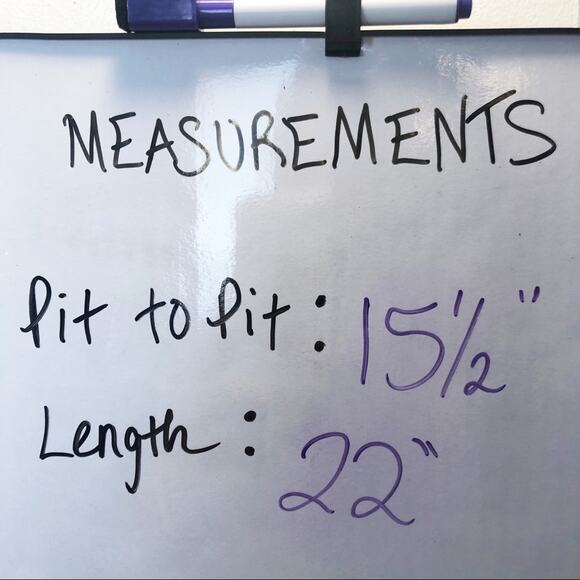 MEASUREMENTS
Pit to Pit: 15 1/2"
Length: 22"